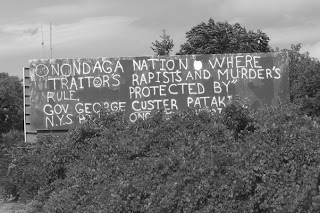 ONONDAGA NATION" WHERE
TRAITORS RAPISTS AND MURDER'S
RULE PROTECTED BY"
GOV GEORGE CUSTER PATAKI
NYS